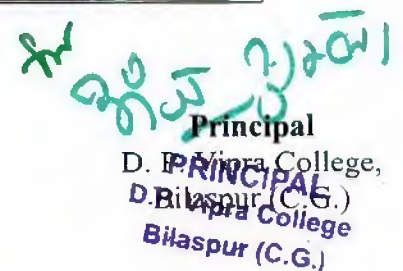 Principal
D. P. Vipra College,
Bilaspur (C.G.)
PRINCIPAL
D.P. Vipra College
Bilaspur (C.G.)